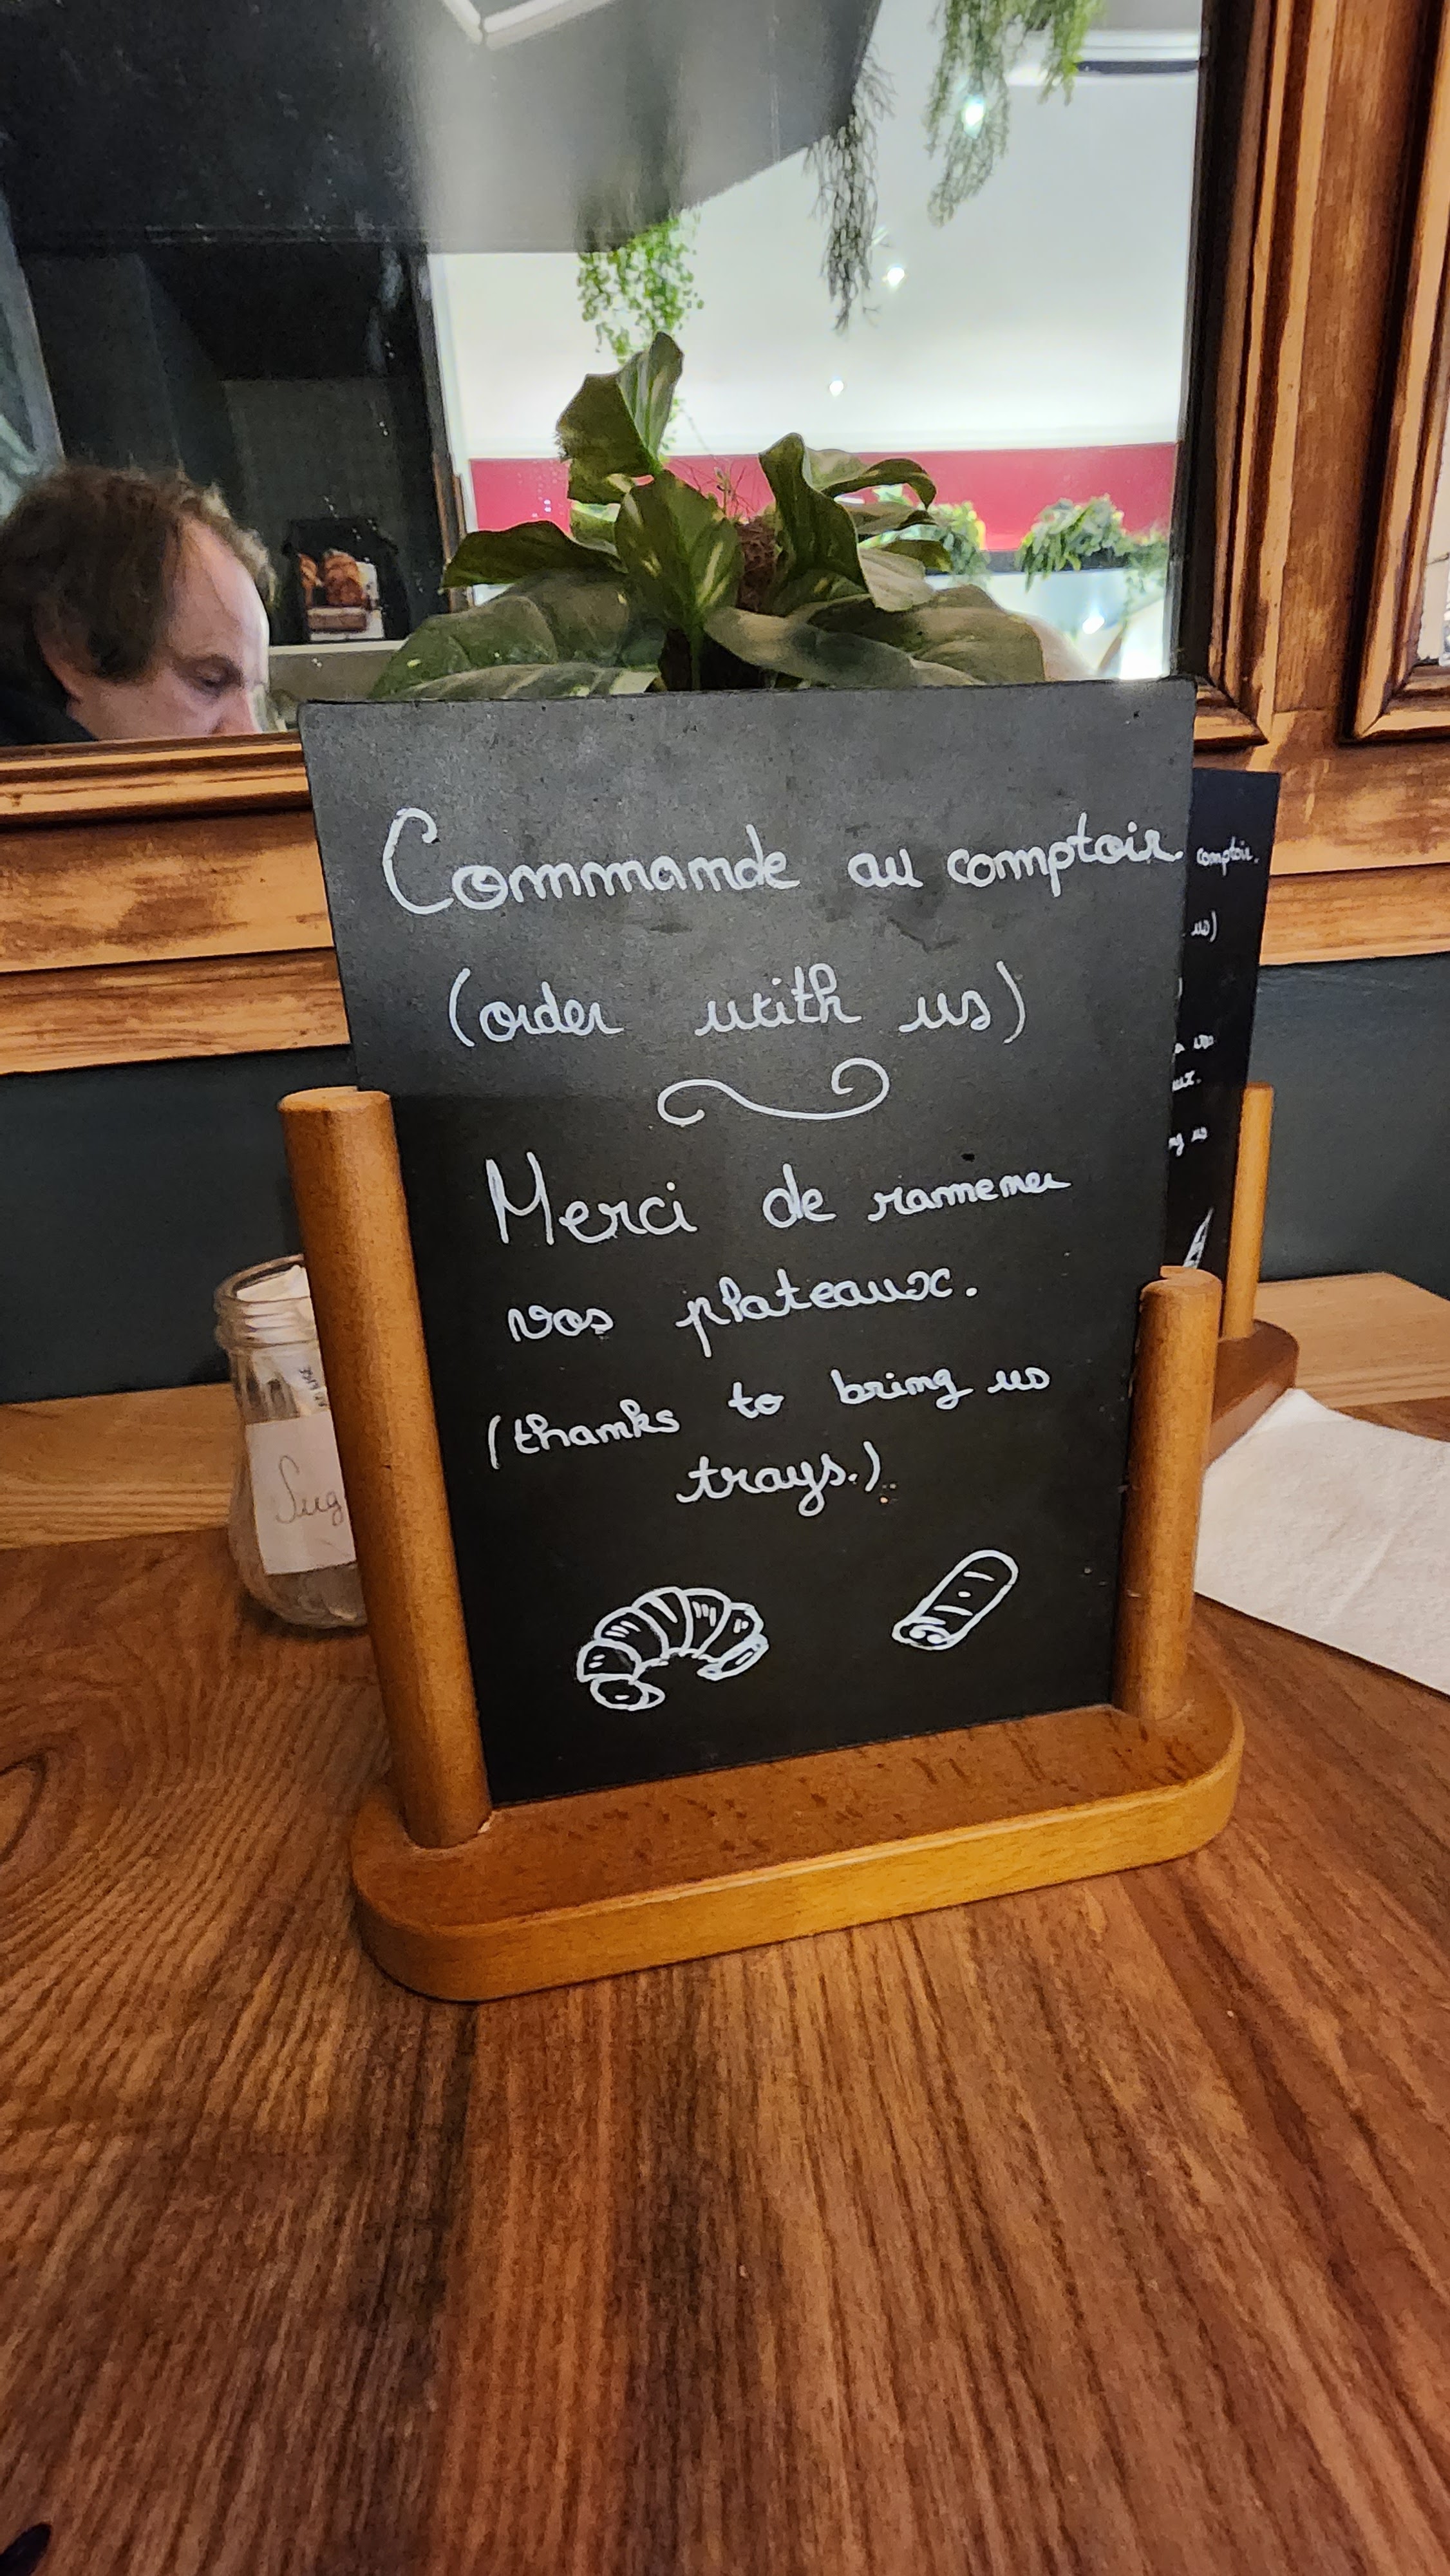 Commande au comptoir.
(order with us)
Merci de ramener
vos plateaux.
(thanks to bring us
trays.)
comptoir.
us)
Sug